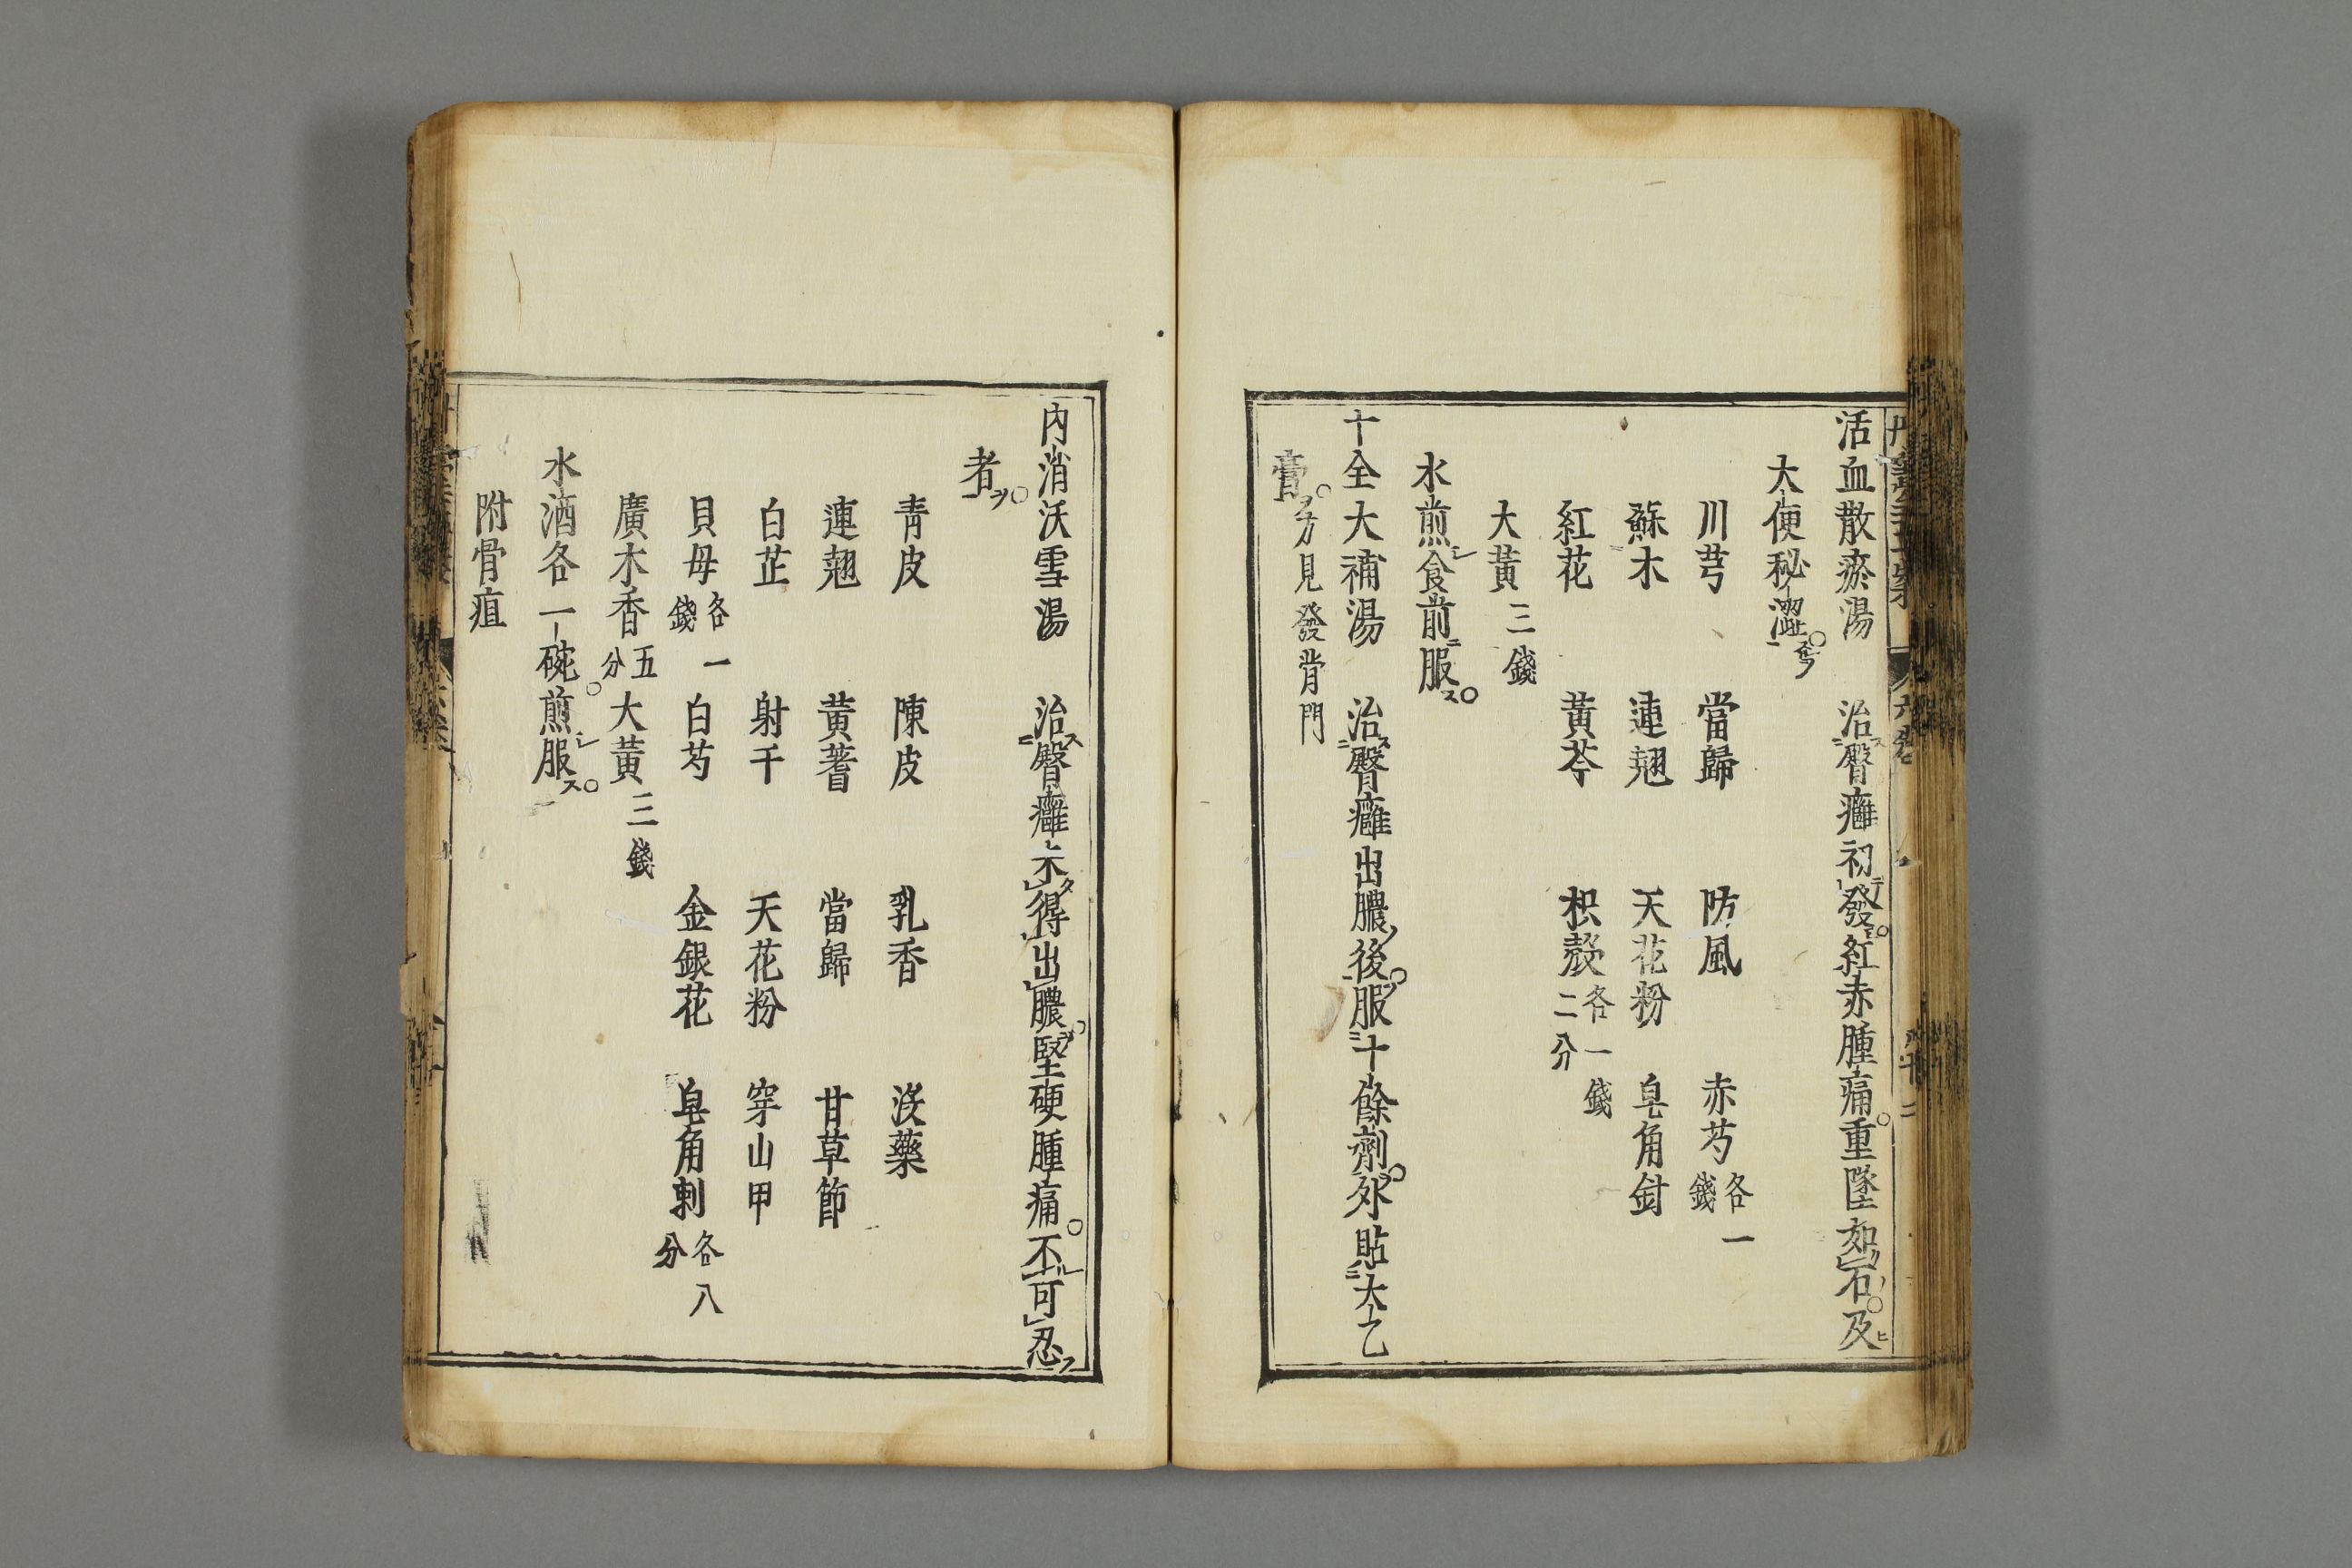 活血散瘀湯 治臀癰初發紅赤腫痛重墜如石及
大便秘澀
川芎 當歸 防風 赤芍各一錢
蘇木 連翹 天花粉 皂角針
紅花 黃芩 枳殼各一錢二分
大黃三錢
水煎食前服
十全大補湯 治臀癰出膿後服十餘劑外貼太乙
膏方見發背門
內消沃雪湯 治臀癰未得出膿堅硬腫痛不可忍
者
青皮 陳皮 乳香 沒藥
連翹 黃蓍 當歸 甘草節
白芷 射干 天花粉 穿山甲
貝母各一錢 白芍 金銀花 皂角刺各八分
廣木香五分 大黃三錢
水酒各一碗煎服
附骨疽